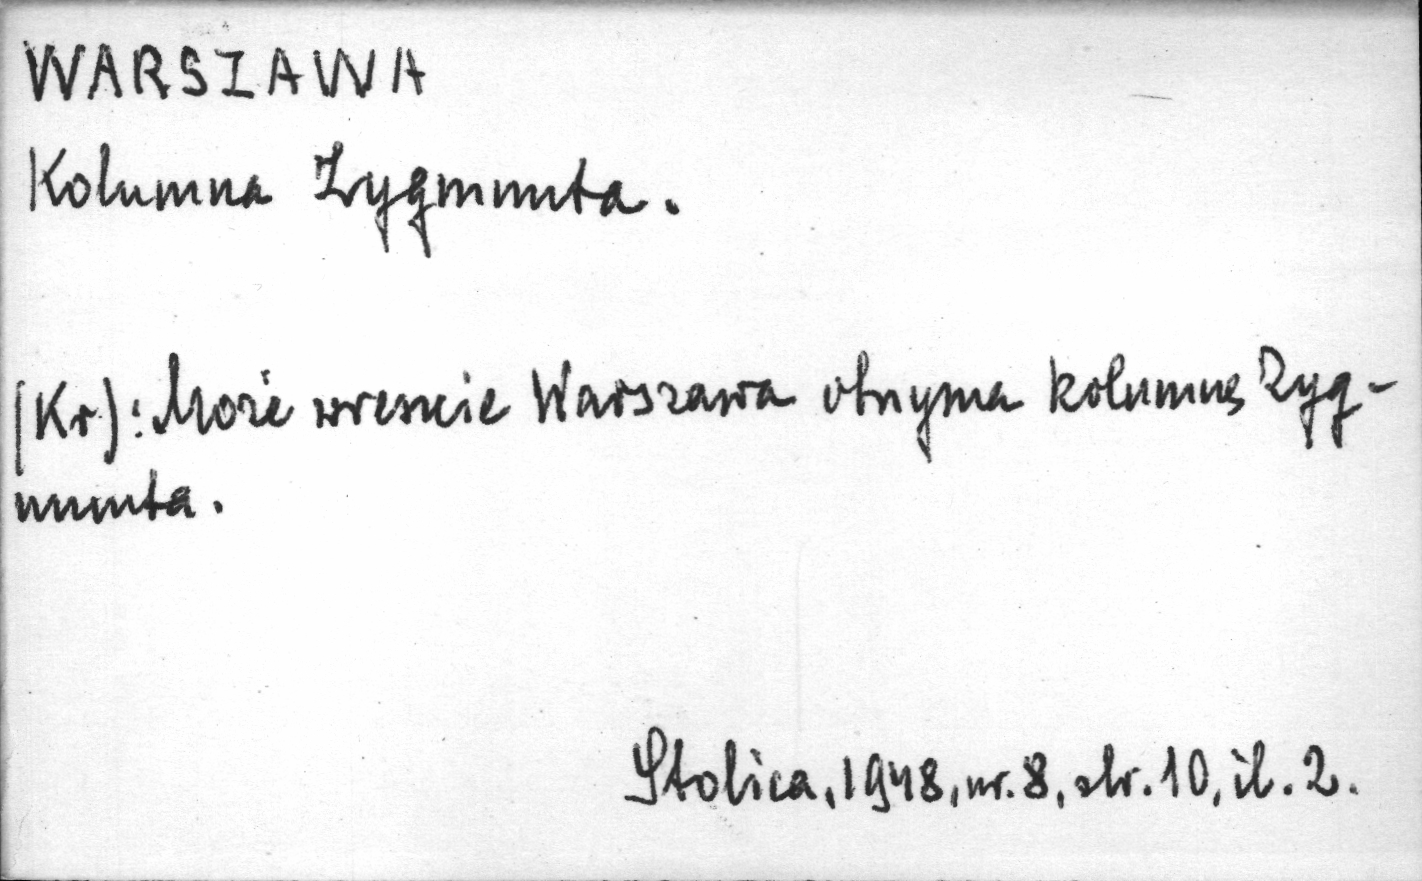 WARSZAWA
Kolumna Zygmunta.
(Kr): Może wreszcie Warszawa otrzyma kolumnę Zyg-
munta.
Stolica, 1948, nr. 8, str. 10, il. 2.